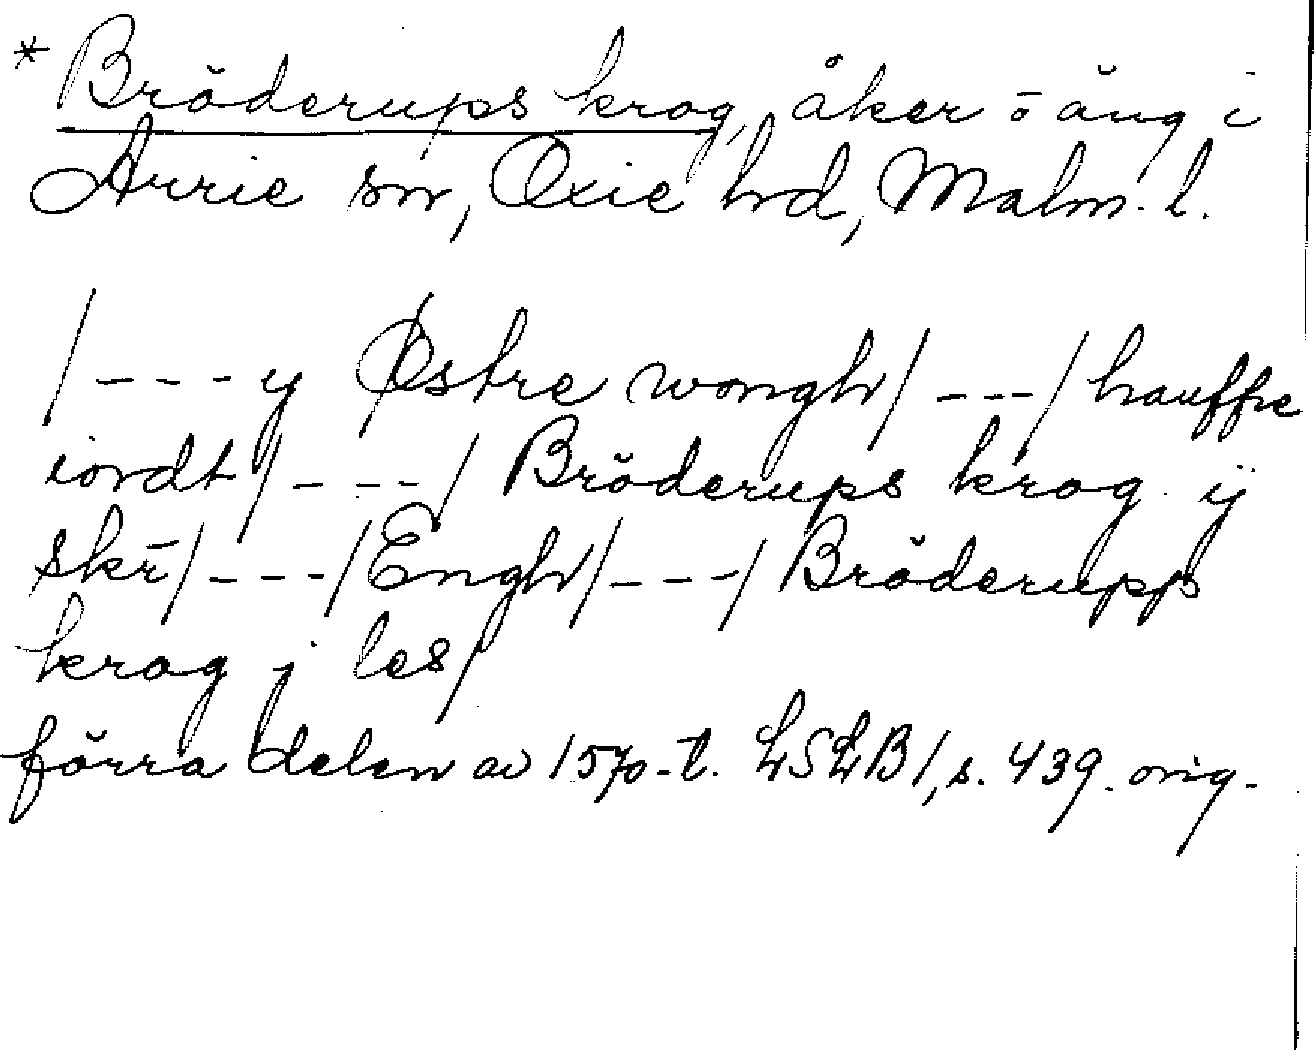 * Bröderups krog, åker o äng i
Arrie sn, Oxie hd, Malm. l.
/---y Østre wongh/---/hauffre
iordt/---/ Bröderups krog ÿ
skr̄/---/Engh/---/ Bröderupps
krog j les/
förra delen av 1570-t. LSLB1, s. 439. orig.